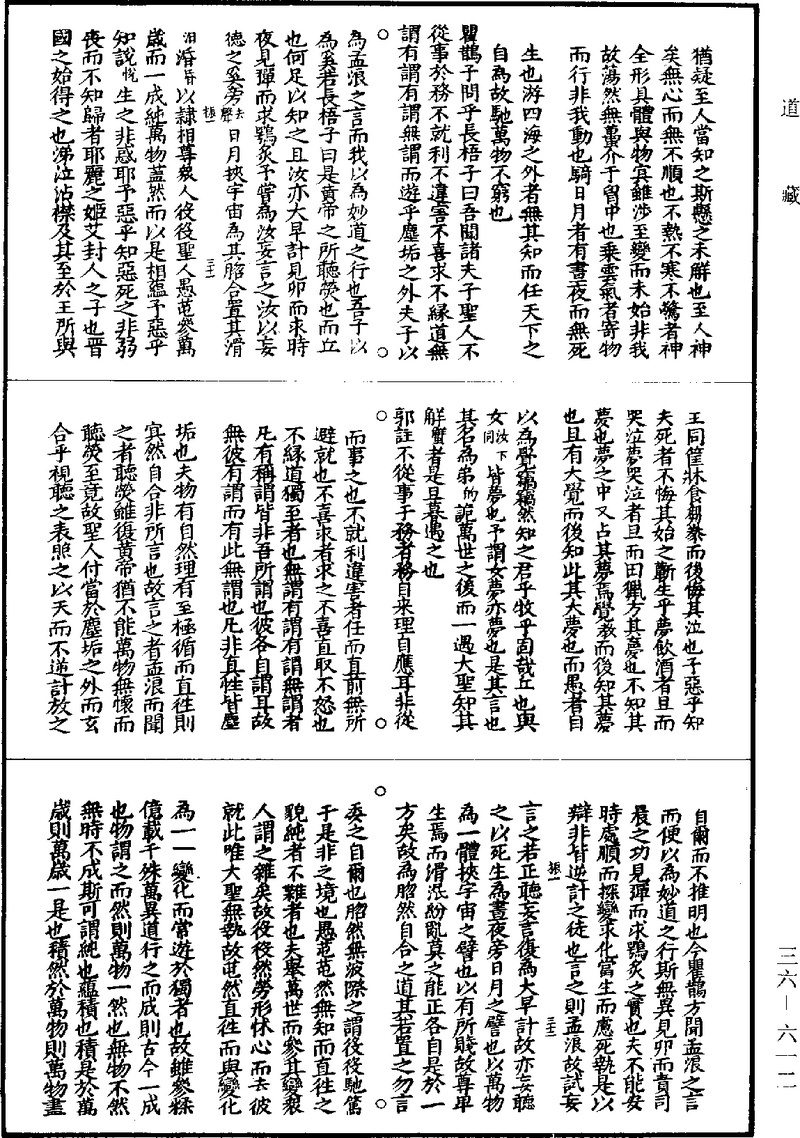 道藏
猶疑至人當知之斯懸之未解也至人神
矣無心而無不順也不熱不寒不驚者神
全形具體與物冥雖涉至變而未始非我
故蕩然無蠆介于胷中也乗雲氣者寄物
而行非我動也騎日月者有晝夜而無死
生也游四海之外者無其知而任天下之
自為故馳萬物不窮也
瞿鵲子問乎長梧子曰吾聞諸夫子聖人不
從事於務不就利不違害不喜求不緣道無
謂有謂有謂無謂而遊乎塵垢之外夫子以
為孟浪之言而我以為妙道之行也吾子以
為奚若長梧子曰是黃帝之所聽熒也而丘
也何足以知之且汝亦大早計見卵而求時
夜見彈而求鴞炙予嘗為汝妄言之汝以妄
聽之奚旁日月挾宇宙為其脗合置其滑
涽以隸相尊衆人役役聖人愚芚參萬
歲而一成純萬物盡然而以是相蘊予惡乎
知說悅生之非惑耶予惡乎知惡死之非弱
喪而不知歸者耶麗之姬艾封人之子也晉
國之始得之也涕泣沾襟及其至於王所與
王同筐牀食芻豢而後悔其泣也予惡乎知
夫死者不悔其始之蘄生乎夢飲酒者旦而
哭泣夢哭泣者旦而田獵方其夢也不知其
夢也夢之中又占其夢焉覺教而後知其夢
也且有大覺而後知此其大夢也而愚者自
以為覺竊竊然知之君乎牧乎固哉丘也與
女汝下同皆夢也予謂女夢亦夢也是其言也
其名為弔的詭萬世之後而一遇大聖知其
解蟹者是旦暮遇之也
郭註不從事于務者務自來理自應耳非從
而事之也不就利違害者任而直前無所
避就也不喜求者求之不喜直取不怒也
不緣道獨至者也無謂有謂有謂無謂者
凡有稱謂皆非吾所謂也彼各自謂耳故
無彼有謂而有此無謂也凡非真性皆塵
垢也夫物有自然理有至極循而直往則
冥然自合非所言也故言之者孟浪而聞
之者聽熒雖復黃帝猶不能萬物無懷而
聽熒至竟故聖人付當於塵垢之外而玄
合乎視聽之表照之以天而不逆計放之
自爾而不推明也今瞿鵲方聞孟浪之言
而便以為妙道之行斯無異見卵而責司
晨之功見彈而求鴞炙之實也夫不能安
時處順而探變求化當生而慮死執是以
辯非皆逆計之徒也言之則孟浪故試妄
言之若正聽妄言復為大早計故亦妄聽
之以死生為晝夜旁日月之譬也以萬物
為一體挾宇宙之譬也以有所賤故尊卑
生焉而滑涽紛亂莫之能正各自是於一
方矣故為脗然自合之道其若置之勿言
委之自爾也脗然無波際之謂役役馳騖
于是非之境也愚芚芚然無知而直往之
貌純者不雜者也夫舉萬世而參其變衆
人謂之雜矣故役役然勞形怵心而去彼
就此唯大聖無執故芚然直往而與變化
為一一變化而常遊於獨者也故雖參糅
億載千殊萬異道行之而成則古今一成
也物謂之而然則萬物一然也無物不然
無時不成斯可謂純也蘊積也積是於萬
歲則萬歲一是也積然於萬物則萬物盡
三六—六一二